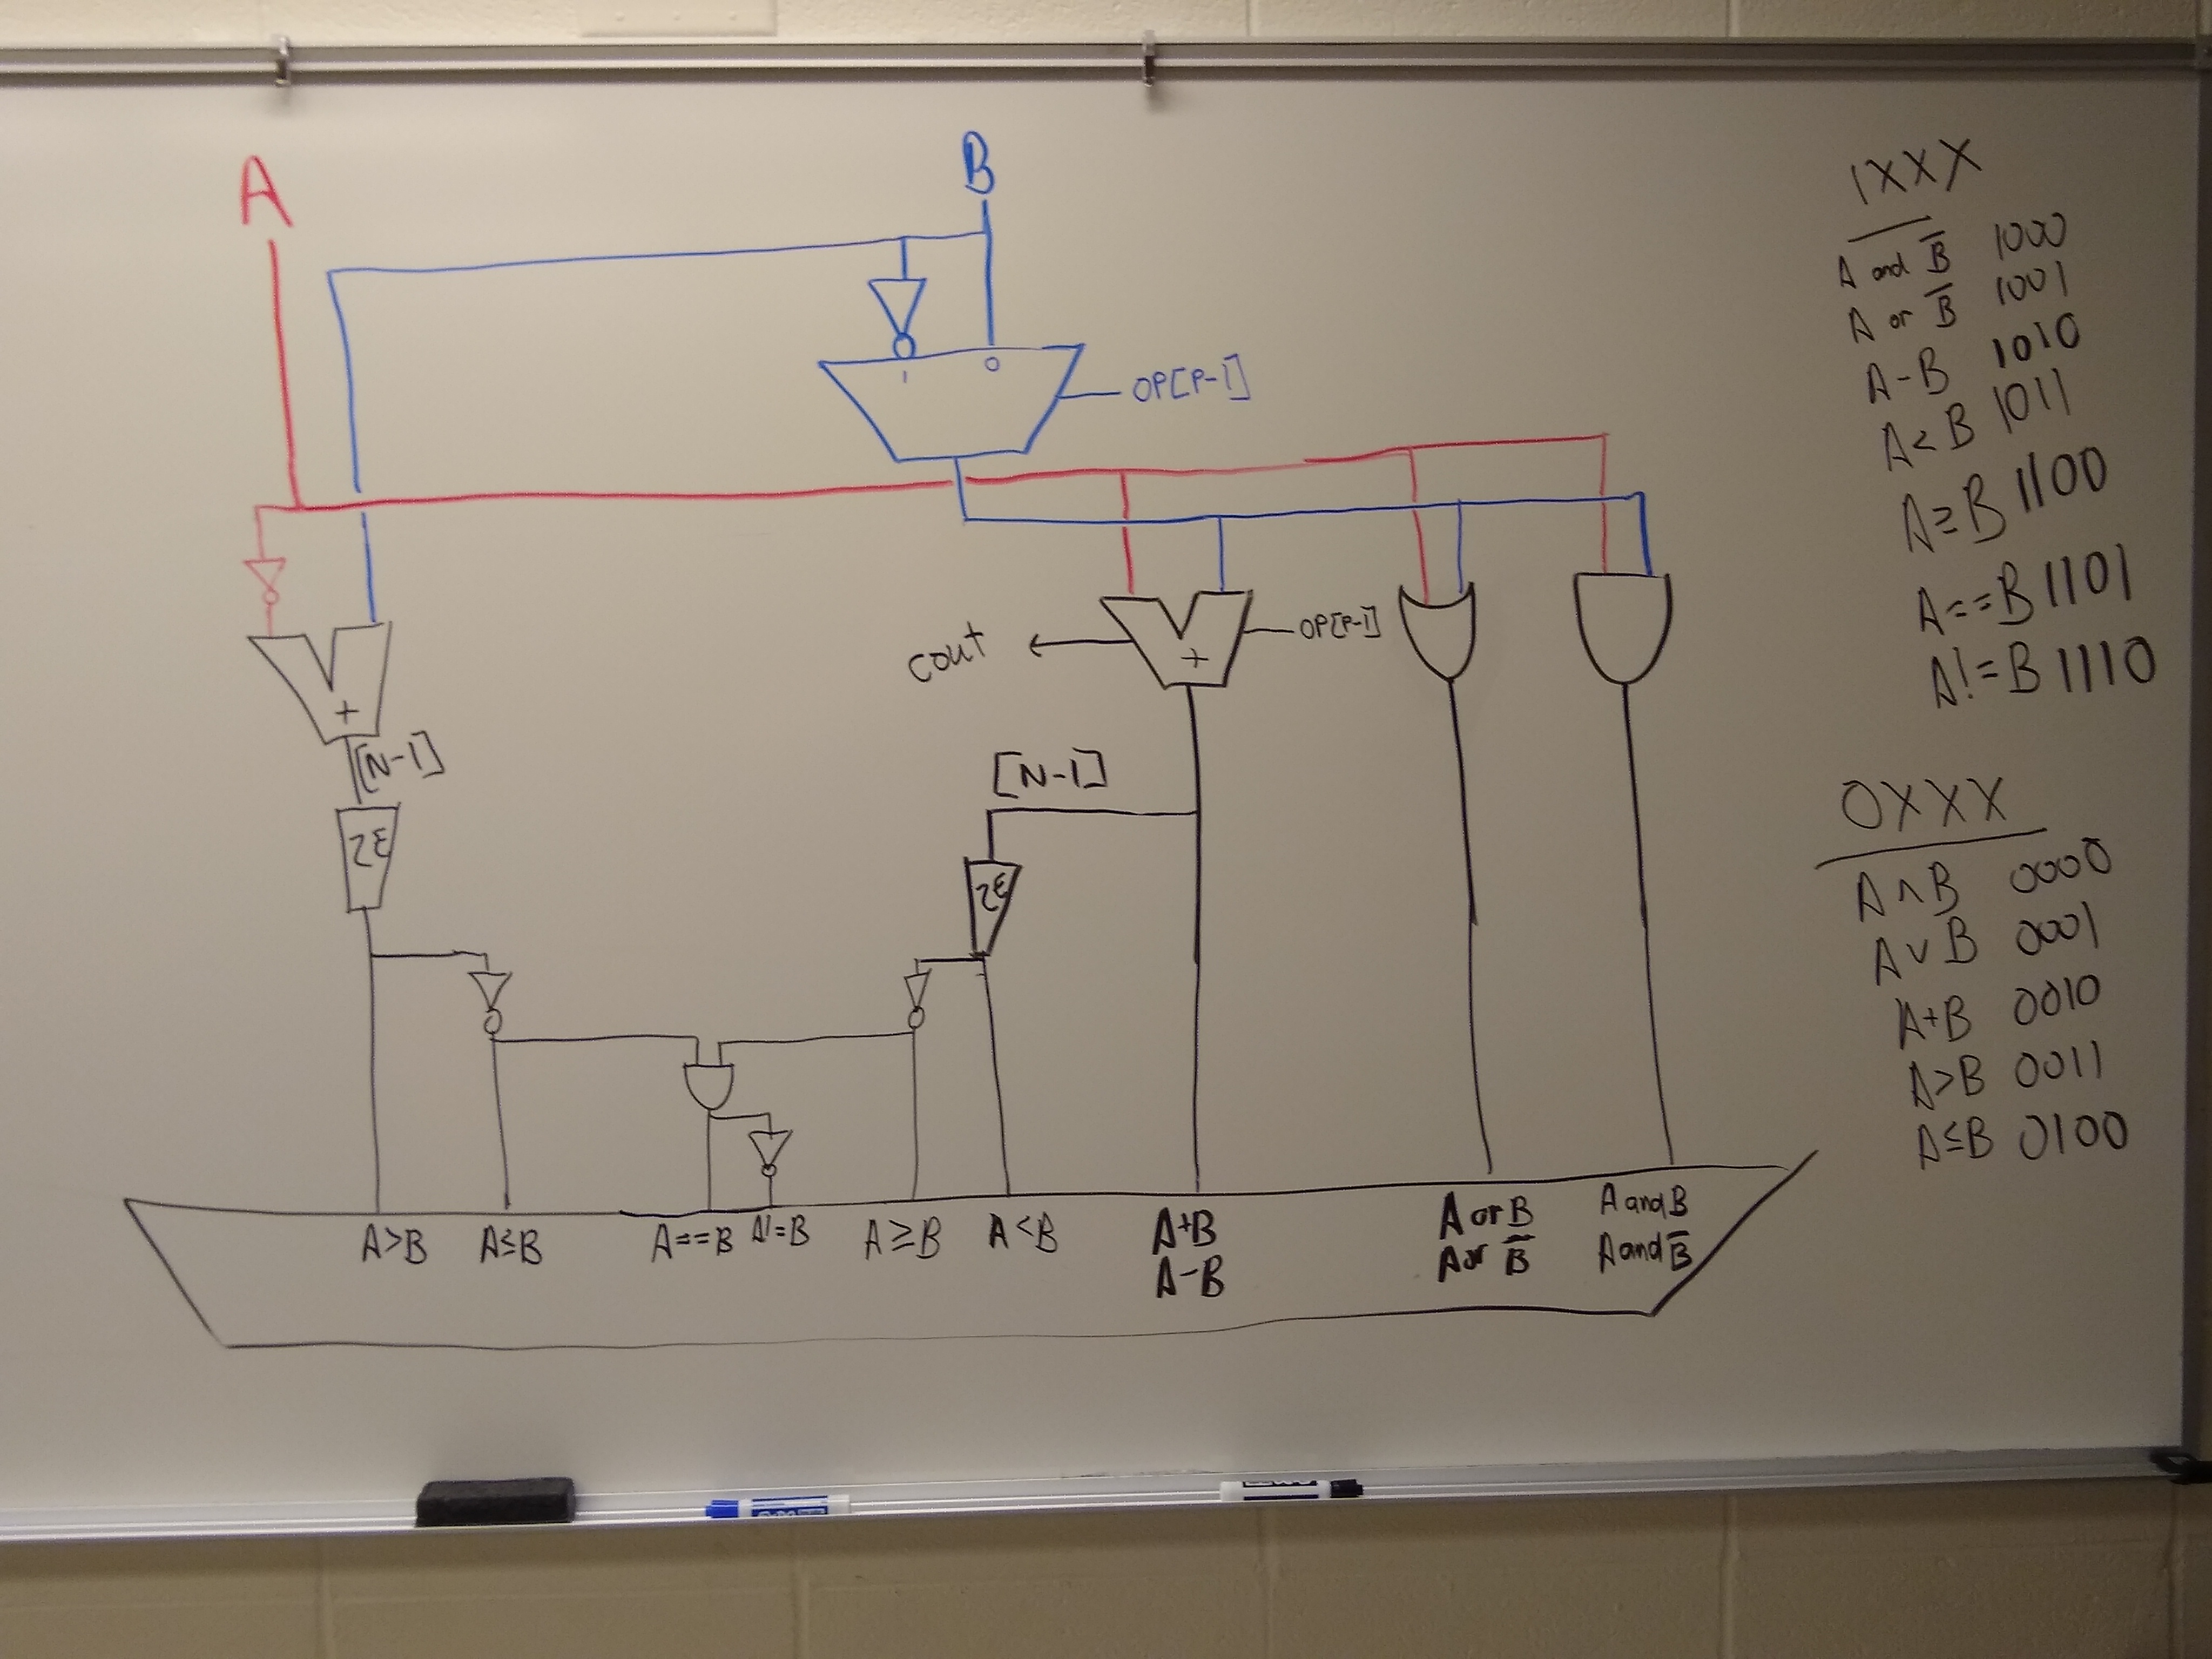 A
B
1 0
OP[P-1]
cout
+
OP[P-1]
+
[N-1]
[N-1]
ZE
ZE
A>B A≤B A==B A!=B A≥B A<B A+B A or B A and B
A-B A or B̅ A and B̅
1XXX
A and B̅ 1000
A or B̅ 1001
A-B 1010
A<B 1011
A≥B 1100
A==B 1101
A!=B 1110
0XXX
A∧B 0000
A∨B 0001
A+B 0010
A>B 0011
A≤B 0100